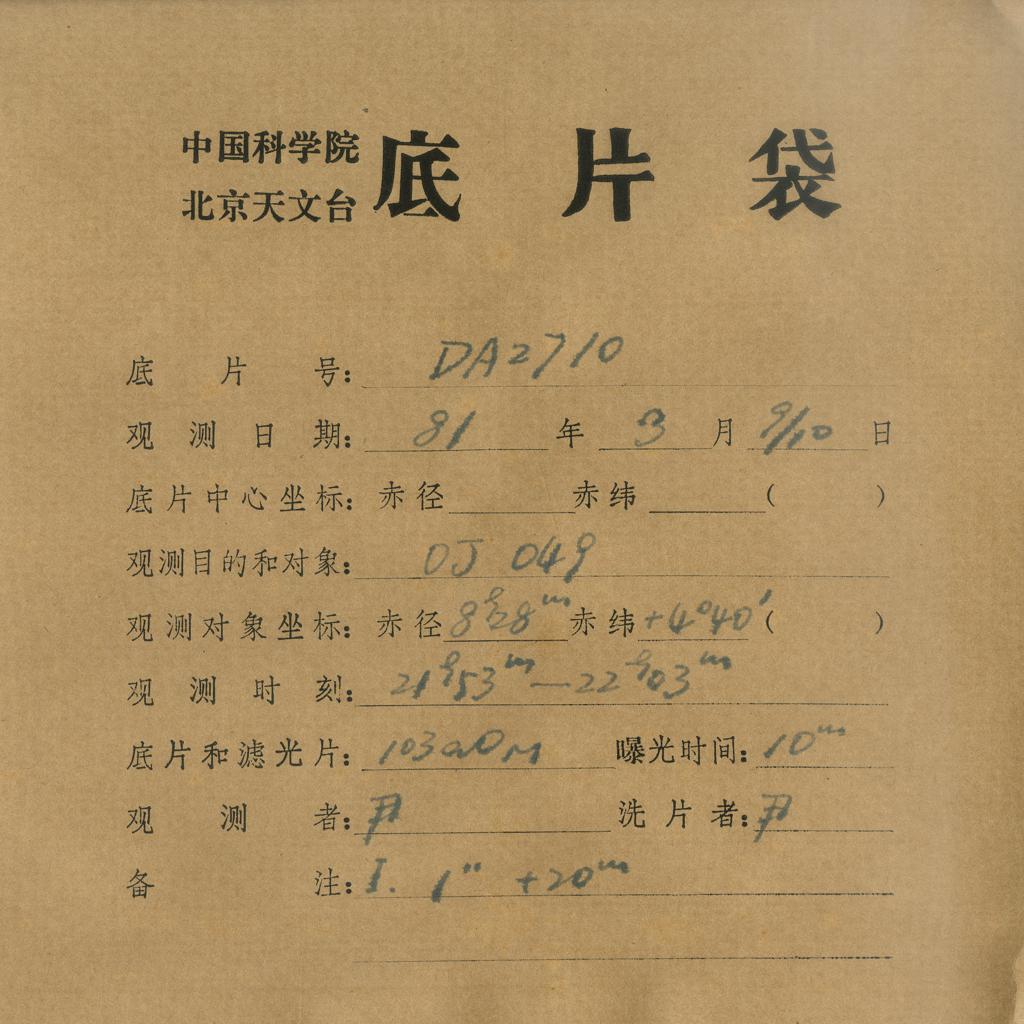 中国科学院
北京天文台
底片袋
底片号: DA2710
观测日期: 81年3月9/10日
底片中心坐标: 赤径 赤纬 ( )
观测目的和对象: OJ 049
观测对象坐标: 赤径 8h28m 赤纬 +4°40′ ( )
观测时刻: 21h53m—22h03m
底片和滤光片: 103aO 曝光时间: 10m
观测者: 尹 洗片者: 尹
备注: I. 1" +20m